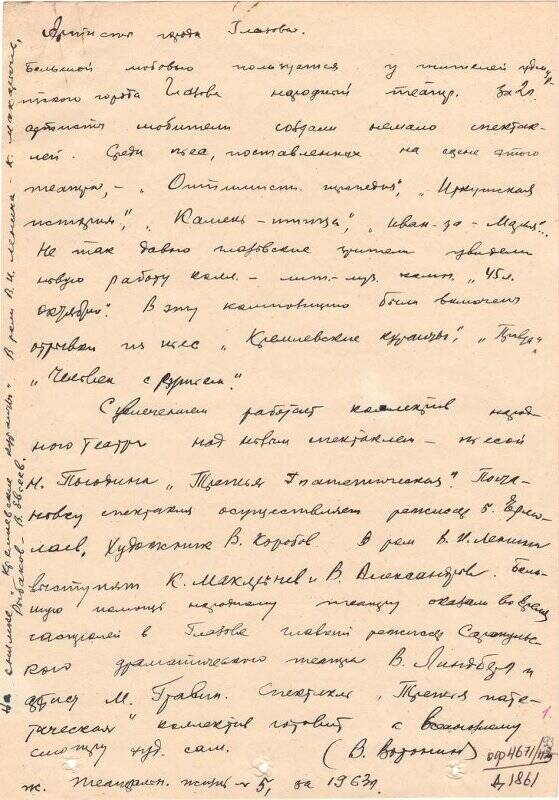 Артисты города Глазова.
Большой любовью пользуется у жителей удмур-
тского города Глазова народный театр. За 2 г.
артисты любители создали немало спектак-
лей. Среди пьес, поставленных на сцене этого
театра, – „Оптимист. трагедия", „Иркутская
история", „Камень-птица", „Иван-да-Марья"...
Не так давно глазовские зрители увидели
новую работу колл. – лит.-муз. комп. „45 л.
октябрю". В эту композицию были включены
отрывки из пьес „Кремлевские куранты", „Правда"
„Человек с ружьем".
С увлечением работает коллектив народ-
ного театра над новым спектаклем – пьесой
Н. Погодина „Третья Патетическая". Поста-
новку спектакля осуществляет режиссер Б. Ермо-
лаев, художник В. Коробов. В роли В. И. Ленина
выступят К. Макшынев и В. Александров. Боль-
шую помощь народному театру оказали во время
гастролей в Глазове главный режиссер Сарапульс-
кого драматического театра В. Линдберг и
артист М. Гравин. Спектакль „Третья пате-
тическая" коллектив готовит к всесоюзному
смотру худ. сам. (В. Воронин)
ж. Театральн. жизнь № 5, за 1963 г.
На снимке: „Кремлевские куранты". В роли В. И. Ленина – К.
Рыбаков – В. Евсеев.
1.
оср 4671/
Д 1861